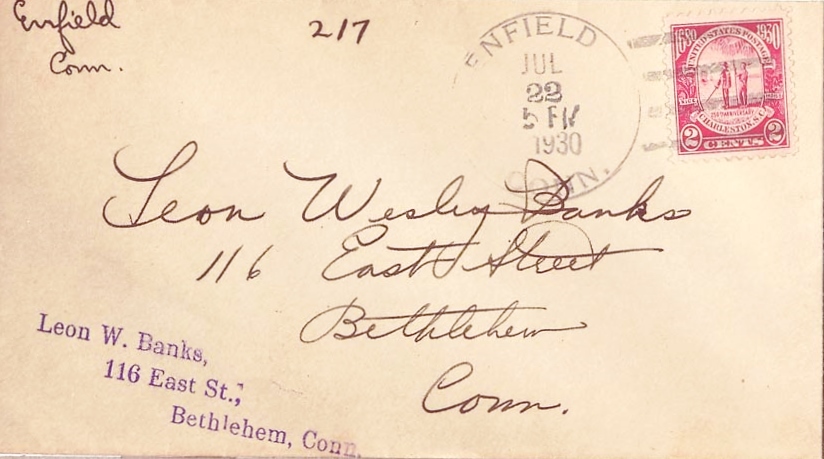 Enfield
Conn.
217
ENFIELD
JUL
22
5 PM
1930
CONN.
1680 1930
UNITED STATES POSTAGE
CHARLESTON, S.C.
2 CENTS 2
Leon Wesley Banks
116 East Street
Bethlehem
Conn.
Leon W. Banks,
116 East St.,
Bethlehem, Conn.